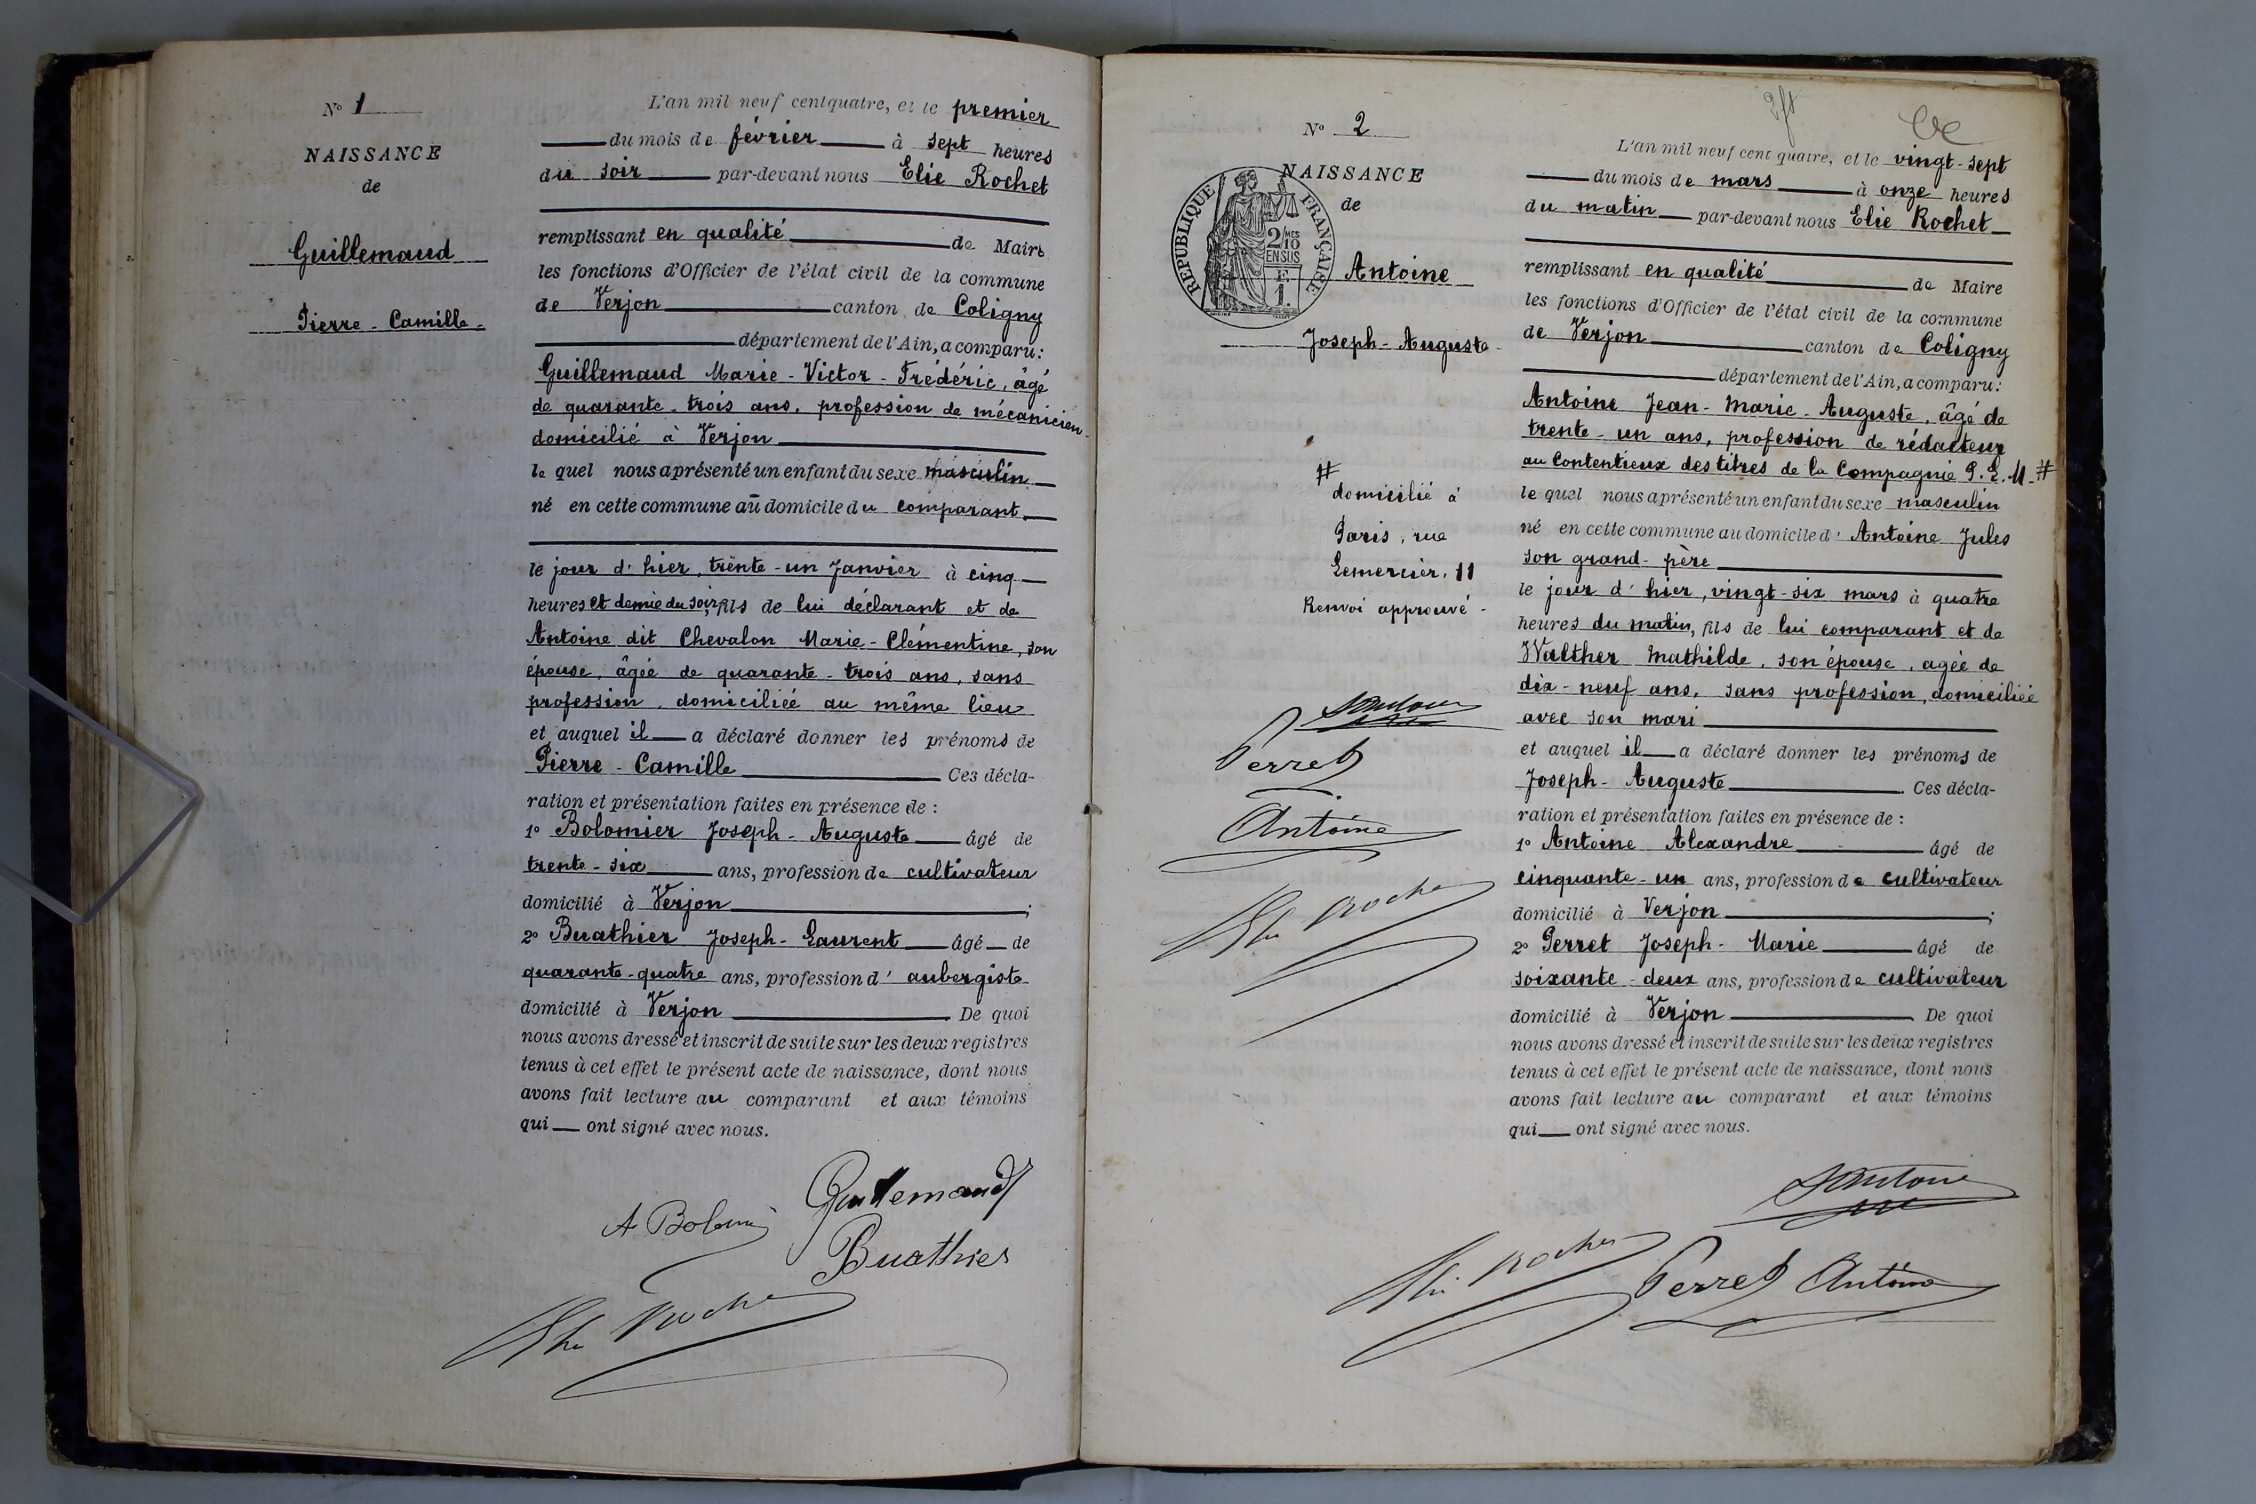 N° 1
NAISSANCE
de
Guillemaud
Pierre - Camille -
L'an mil neuf cent quatre, et le premier
du mois de février à sept heures
du soir par-devant nous Elie Rochet
remplissant en qualité de Maire
les fonctions d'Officier de l'état civil de la commune
de Verjon canton de Coligny
département de l'Ain, a comparu:
Guillemaud Marie - Victor - Frédéric, âgé
de quarante - trois ans, profession de mécanicien
domicilié à Verjon
le quel nous a présenté un enfant du sexe masculin
né en cette commune au domicile du comparant
le jour d'hier, trente - un Janvier à cinq
heures et demie du soir, fils de lui déclarant et de
Antoine dit Chevalon Marie - Clémentine, son
épouse, âgée de quarante - trois ans, sans
profession, domiciliée au même lieu
et auquel il a déclaré donner les prénoms de
Pierre - Camille Ces décla-
ration et présentation faites en présence de :
1° Bolomier Joseph - Auguste âgé de
trente - six ans, profession de cultivateur
domicilié à Verjon ;
2° Buathier Joseph - Laurent âgé de
quarante - quatre ans, profession d' aubergiste
domicilié à Verjon De quoi
nous avons dressé et inscrit de suite sur les deux registres
tenus à cet effet le présent acte de naissance, dont nous
avons fait lecture au comparant et aux témoins
qui ont signé avec nous.
Guillemaud
A Bolomier
Buathier
Elie Rochet
N° 2
NAISSANCE
de
RÉPUBLIQUE FRANÇAISE
2/10 MES
EN SUS
F.
1.
Antoine
Joseph - Auguste -
#
domicilié à
Paris, rue
Lemercier, 11
Renvoi approuvé -
Antoine
Perret
Antoine
Elie Rochet
L'an mil neuf cent quatre, et le vingt - sept
du mois de mars à onze heures
du matin par-devant nous Elie Rochet
remplissant en qualité de Maire
les fonctions d'Officier de l'état civil de la commune
de Verjon canton de Coligny
département de l'Ain, a comparu:
Antoine Jean - Marie - Auguste, âgé de
trente - un ans, profession de rédacteur
au Contentieux des titres de la Compagnie P. L. M. #
le quel nous a présenté un enfant du sexe masculin
né en cette commune au domicile d' Antoine Jules
son grand - père
le jour d'hier, vingt - six mars à quatre
heures du matin, fils de lui comparant et de
Walther Mathilde, son épouse, agée de
dix - neuf ans, sans profession, domiciliée
avec son mari
et auquel il a déclaré donner les prénoms de
Joseph - Auguste Ces décla-
ration et présentation faites en présence de :
1° Antoine Alexandre âgé de
cinquante - un ans, profession de cultivateur
domicilié à Verjon ;
2° Perret Joseph - Marie âgé de
soixante - deux ans, profession de cultivateur
domicilié à Verjon De quoi
nous avons dressé et inscrit de suite sur les deux registres
tenus à cet effet le présent acte de naissance, dont nous
avons fait lecture au comparant et aux témoins
qui ont signé avec nous.
Antoine
Elie Rochet Perret Antoine